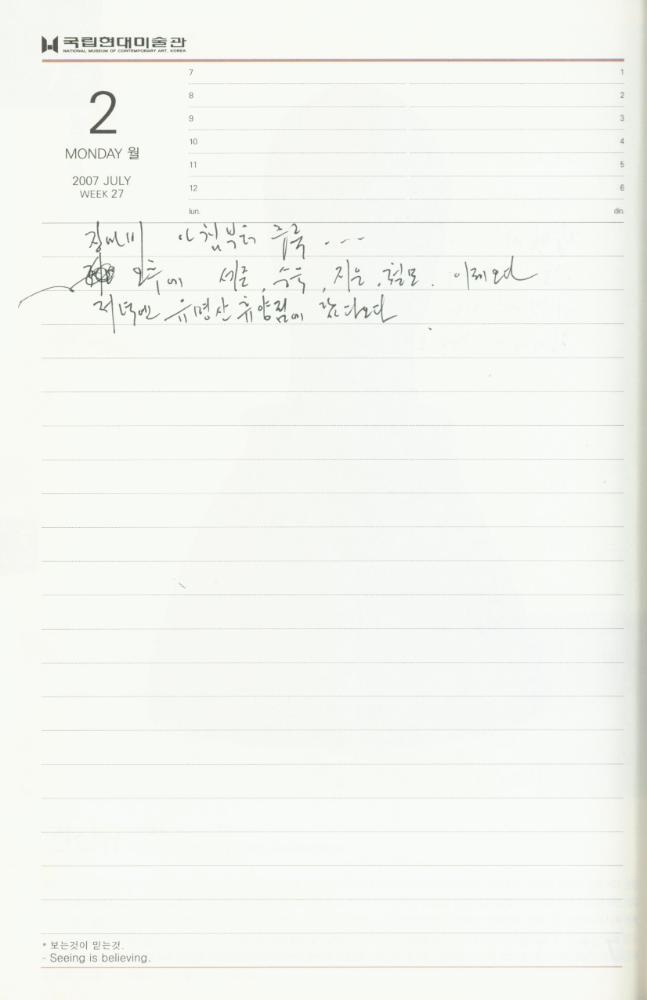 국립현대미술관
NATIONAL MUSEUM OF CONTEMPORARY ART, KOREA
2
MONDAY 월
2007 JULY
WEEK 27
7 1
8 2
9 3
10 4
11 5
12 6
lun. din.
장마비 아침부터 주룩 ...
오후에 세준, 승욱, 지은, 철모.
저녁엔 유명산 휴양림에
* 보는것이 믿는것.
- Seeing is believing.